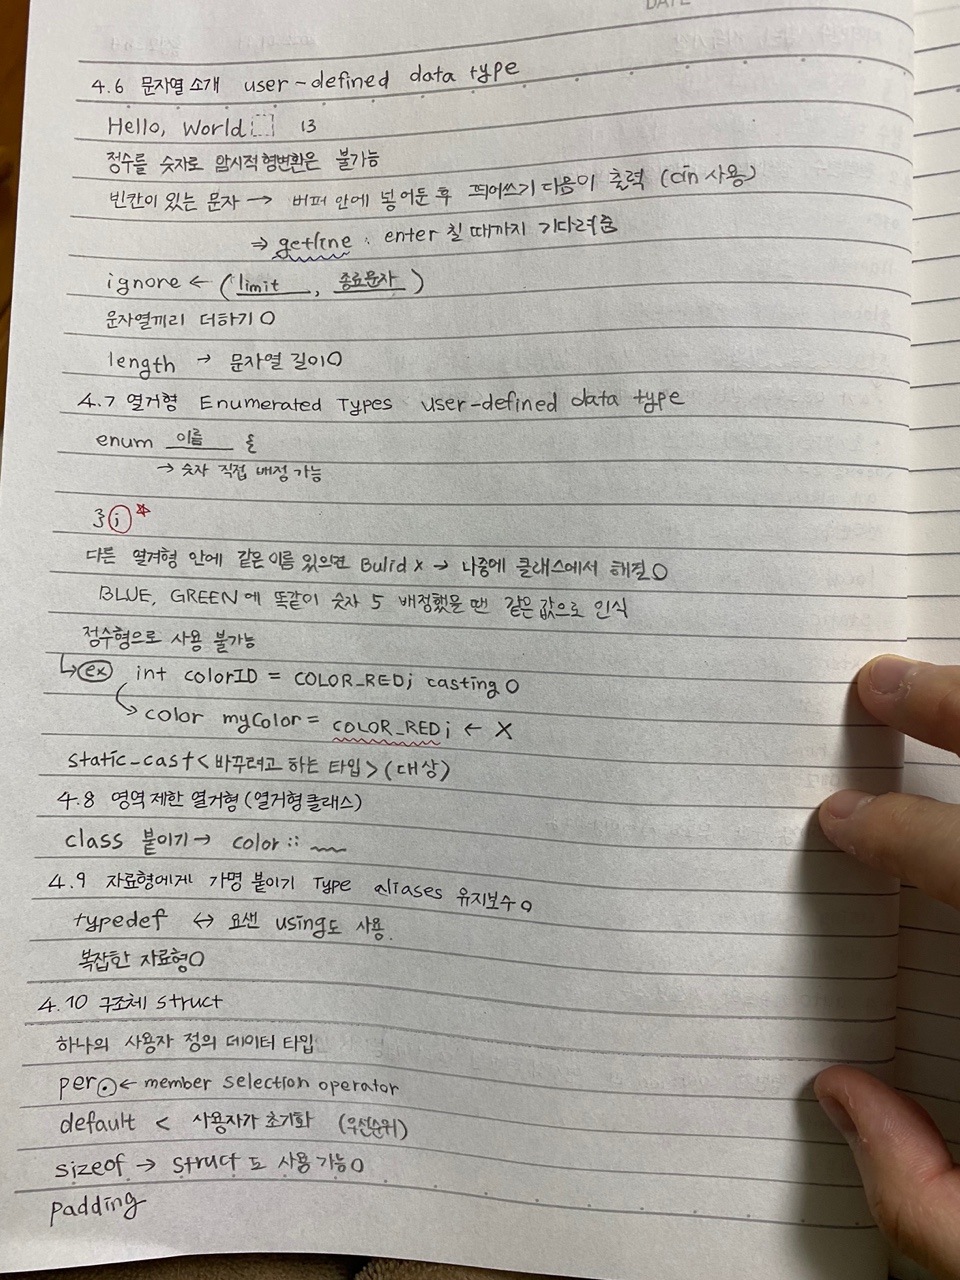 DATE
4.6 문자열 소개 user-defined data type
Hello, World 13
정수를 숫자로 암시적 형변환은 불가능
빈칸이 있는 문자 → 버퍼 안에 넣어둔 후 띄어쓰기 다음이 출력 (cin 사용)
⇒ getline : enter 칠 때까지 기다려줌
ignore ← (limit, 종료문자)
문자열끼리 더하기 O
length → 문자열 길이O
4.7 열거형 Enumerated Types user-defined data type
enum 이름 {
→ 숫자 직접 배정 가능
};
다른 열겨형 안에 같은 이름 있으면 Bulid X → 나중에 클래스에서 해결O
BLUE, GREEN에 똑같이 숫자 5 배정했을 땐 같은 값으로 인식
정수형으로 사용 불가능
ex int colorID = COLOR_RED; casting O
color myColor = COLOR_RED; ← X
static_cast<바꾸려고 하는 타입>(대상)
4.8 영역 제한 열거형 (열거형 클래스)
class 붙이기 → color ::
4.9 자료형에게 가명 붙이기 Type aliases 유지보수 O
typedef ↔ 요샌 using도 사용.
복잡한 자료형O
4.10 구조체 struct
하나의 사용자 정의 데이터 타입
per. ← member selection operator
default < 사용자가 초기화 (우선순위)
sizeof → struct 도 사용 가능O
padding